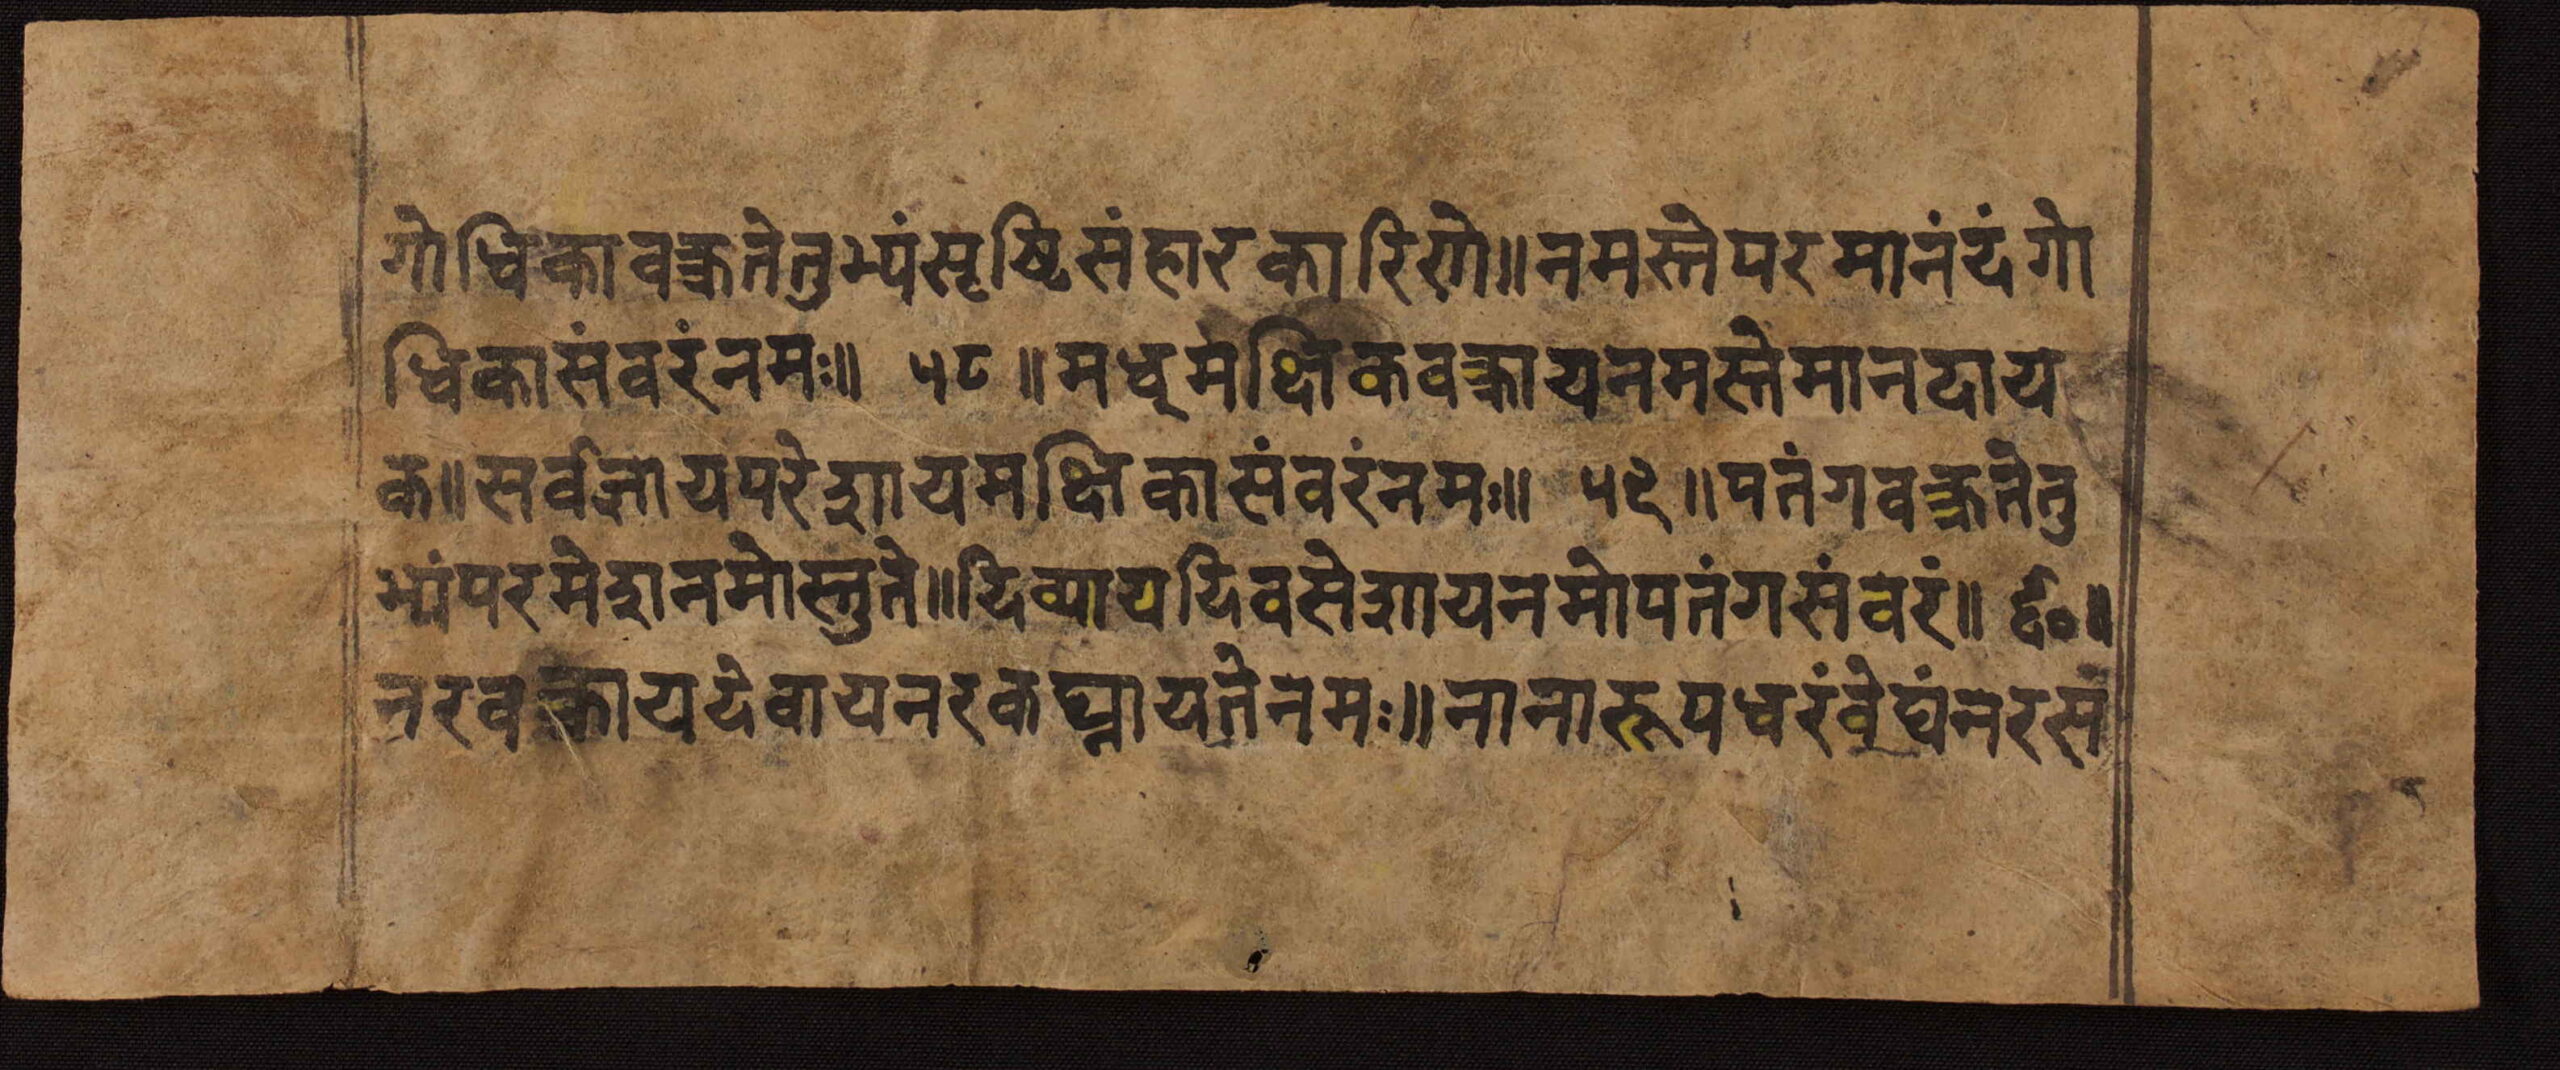 गोधिकावक्त्रतेतुभ्यंसृष्टिसंहारकारिणे॥नमस्तेपरमानंदंगो
धिकासंवरंनमः॥ ५८ ॥मधुमक्षिकवक्त्रायनमस्तेमानदाय
क॥सर्वज्ञायपरेशायमक्षिकासंवरंनमः॥ ५९ ॥पतंगवक्त्रतेतु
भ्यंपरमेशनमोस्तुते॥दिव्यायदिवसेशायनमोपतंगसंवरं॥ ६० ॥
नरवक्त्रायदेवायनरकघ्नायतेनमः॥नानारूपधरंवेद्यंनरसं